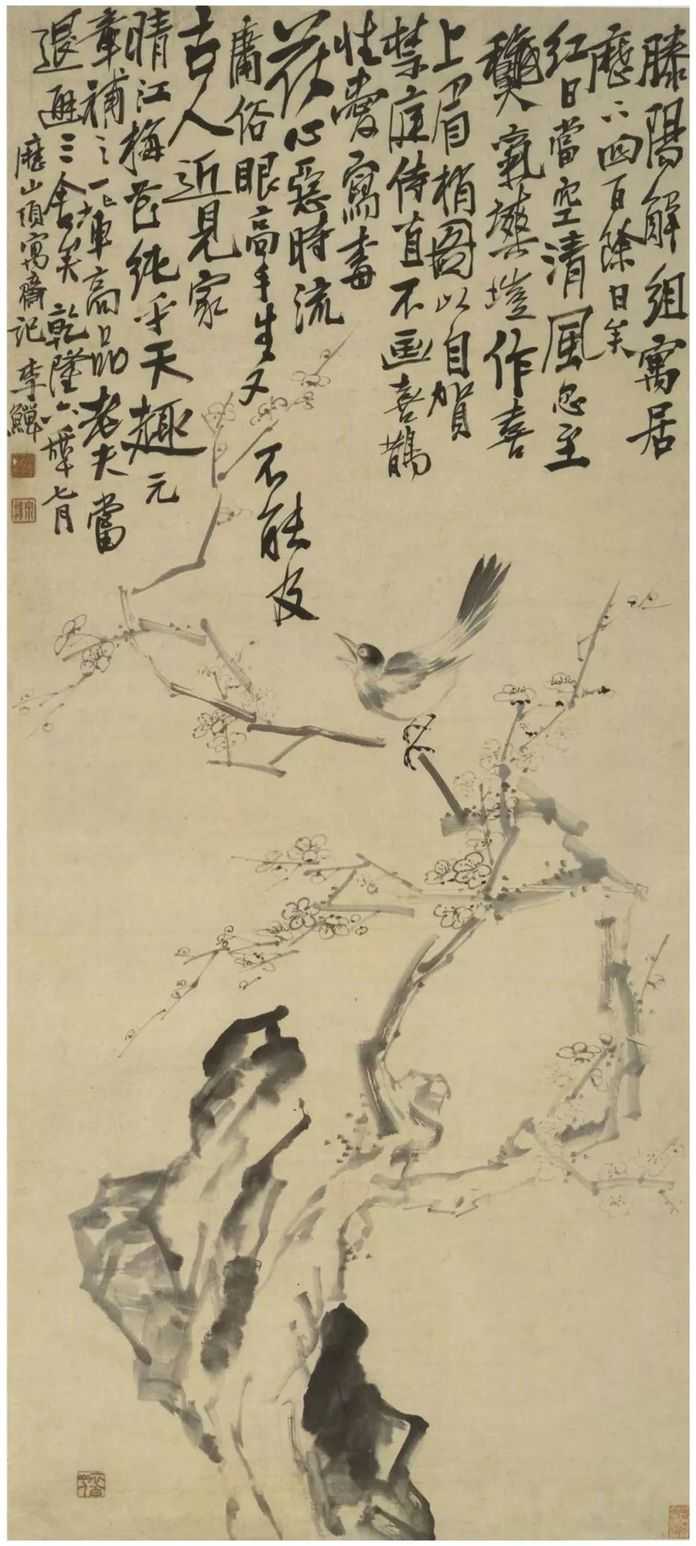 滕陽解組寓居
歷下四百餘日矣
紅日當空清風忽至
氣塏作喜
上眉梢圖以自賀
禁庭侍直不画喜鵲
性愛寫梅
花心惡時流
庸俗眼高手生又不能及
古人近見家
晴江梅花純乎天趣元
章補之一輩高品老夫當
退避三舍矣乾隆六年七月
歷山頂寓齋記李鱓